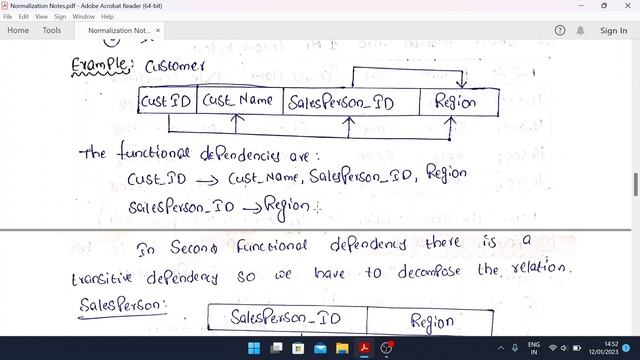 Normalization Notes.pdf - Adobe Acrobat Reader (64-bit)
File Edit View Sign Window Help
Home Tools Normalization Notes... × Sign In
Example: Customer
Cust ID Cust_Name SalesPerson_ID Region
The functional dependencies are:
Cust_ID → Cust_Name, SalesPerson_ID, Region
SalesPerson_ID → Region
In Second Functional dependency there is a
transitive dependency so we have to decompose the relation.
SalesPerson:
SalesPerson_ID Region
ENG
IN
14:52
12/01/2023